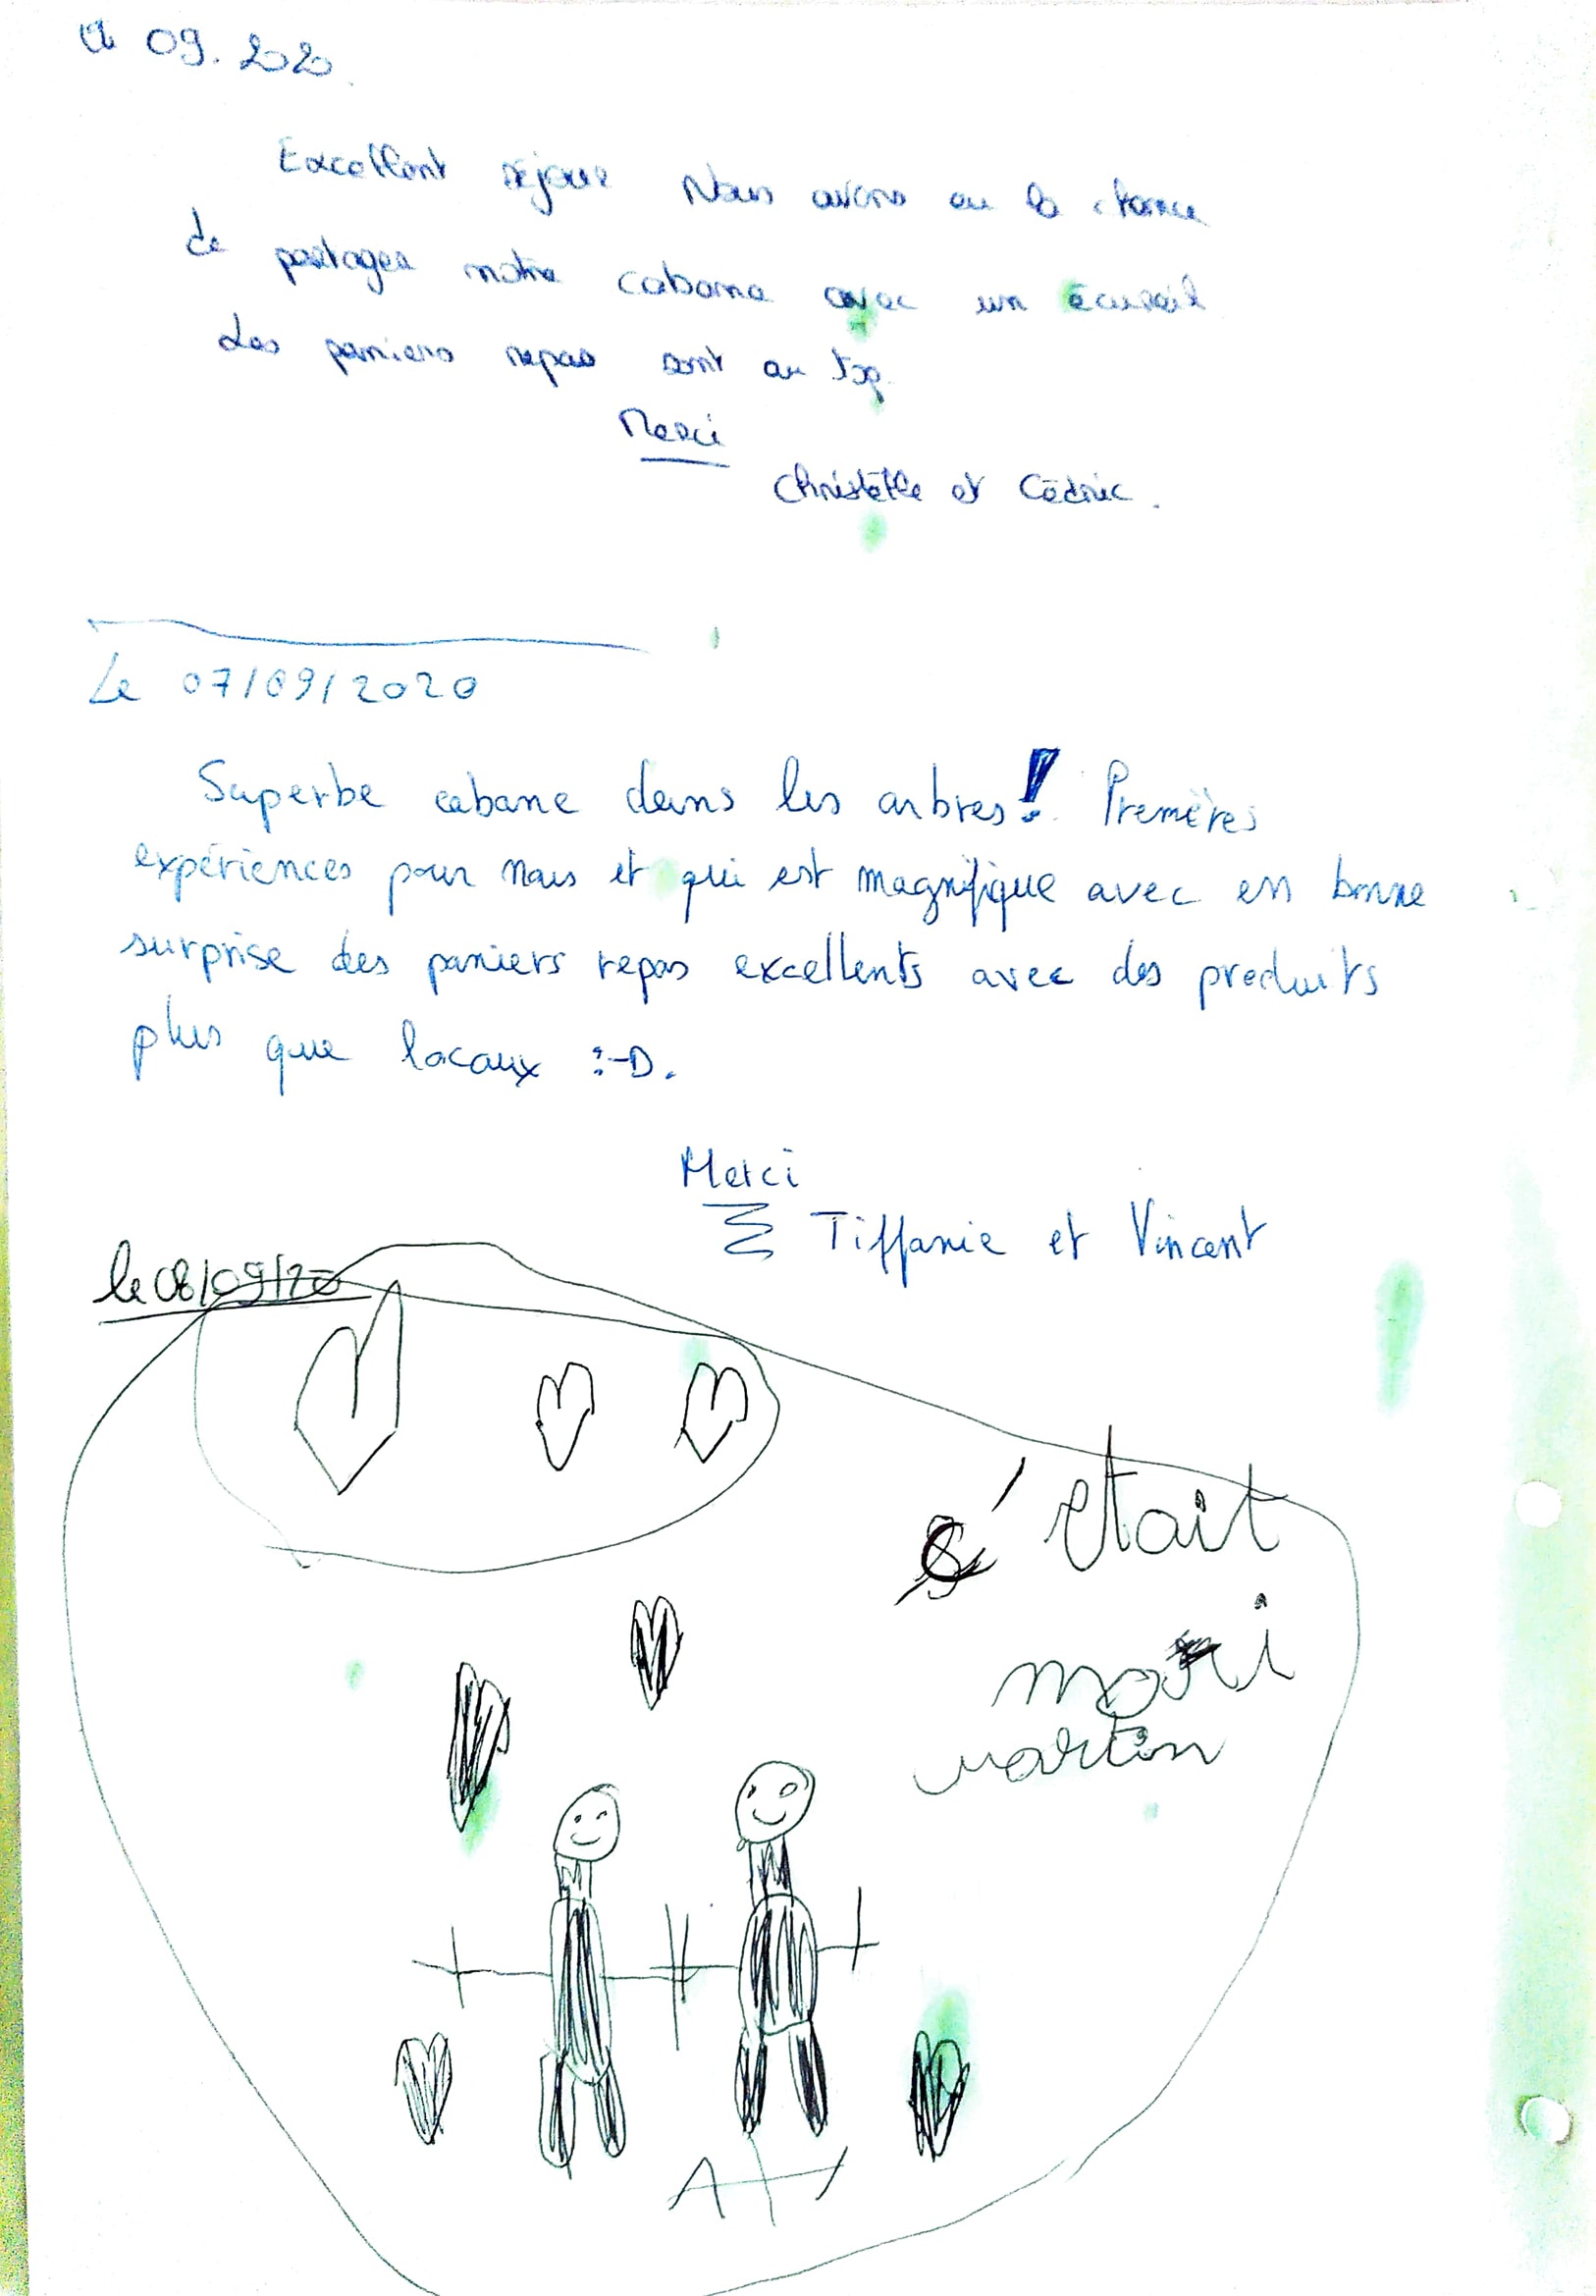 09.2020
Excellent séjour Nous avons eu la chance
de partager notre cabane avec un écureuil
Les paniers repas sont au top.
Merci
Christelle et Cédric.
Le 07/09/2020
Superbe cabane dans les arbres! Premères
expériences pour nous et qui est magnifique avec en bonne
surprise des paniers repas excellents avec des produits
plus que locaux :-D.
Merci
Tiffanie et Vincent
le 08/09/20
c'etait
martin